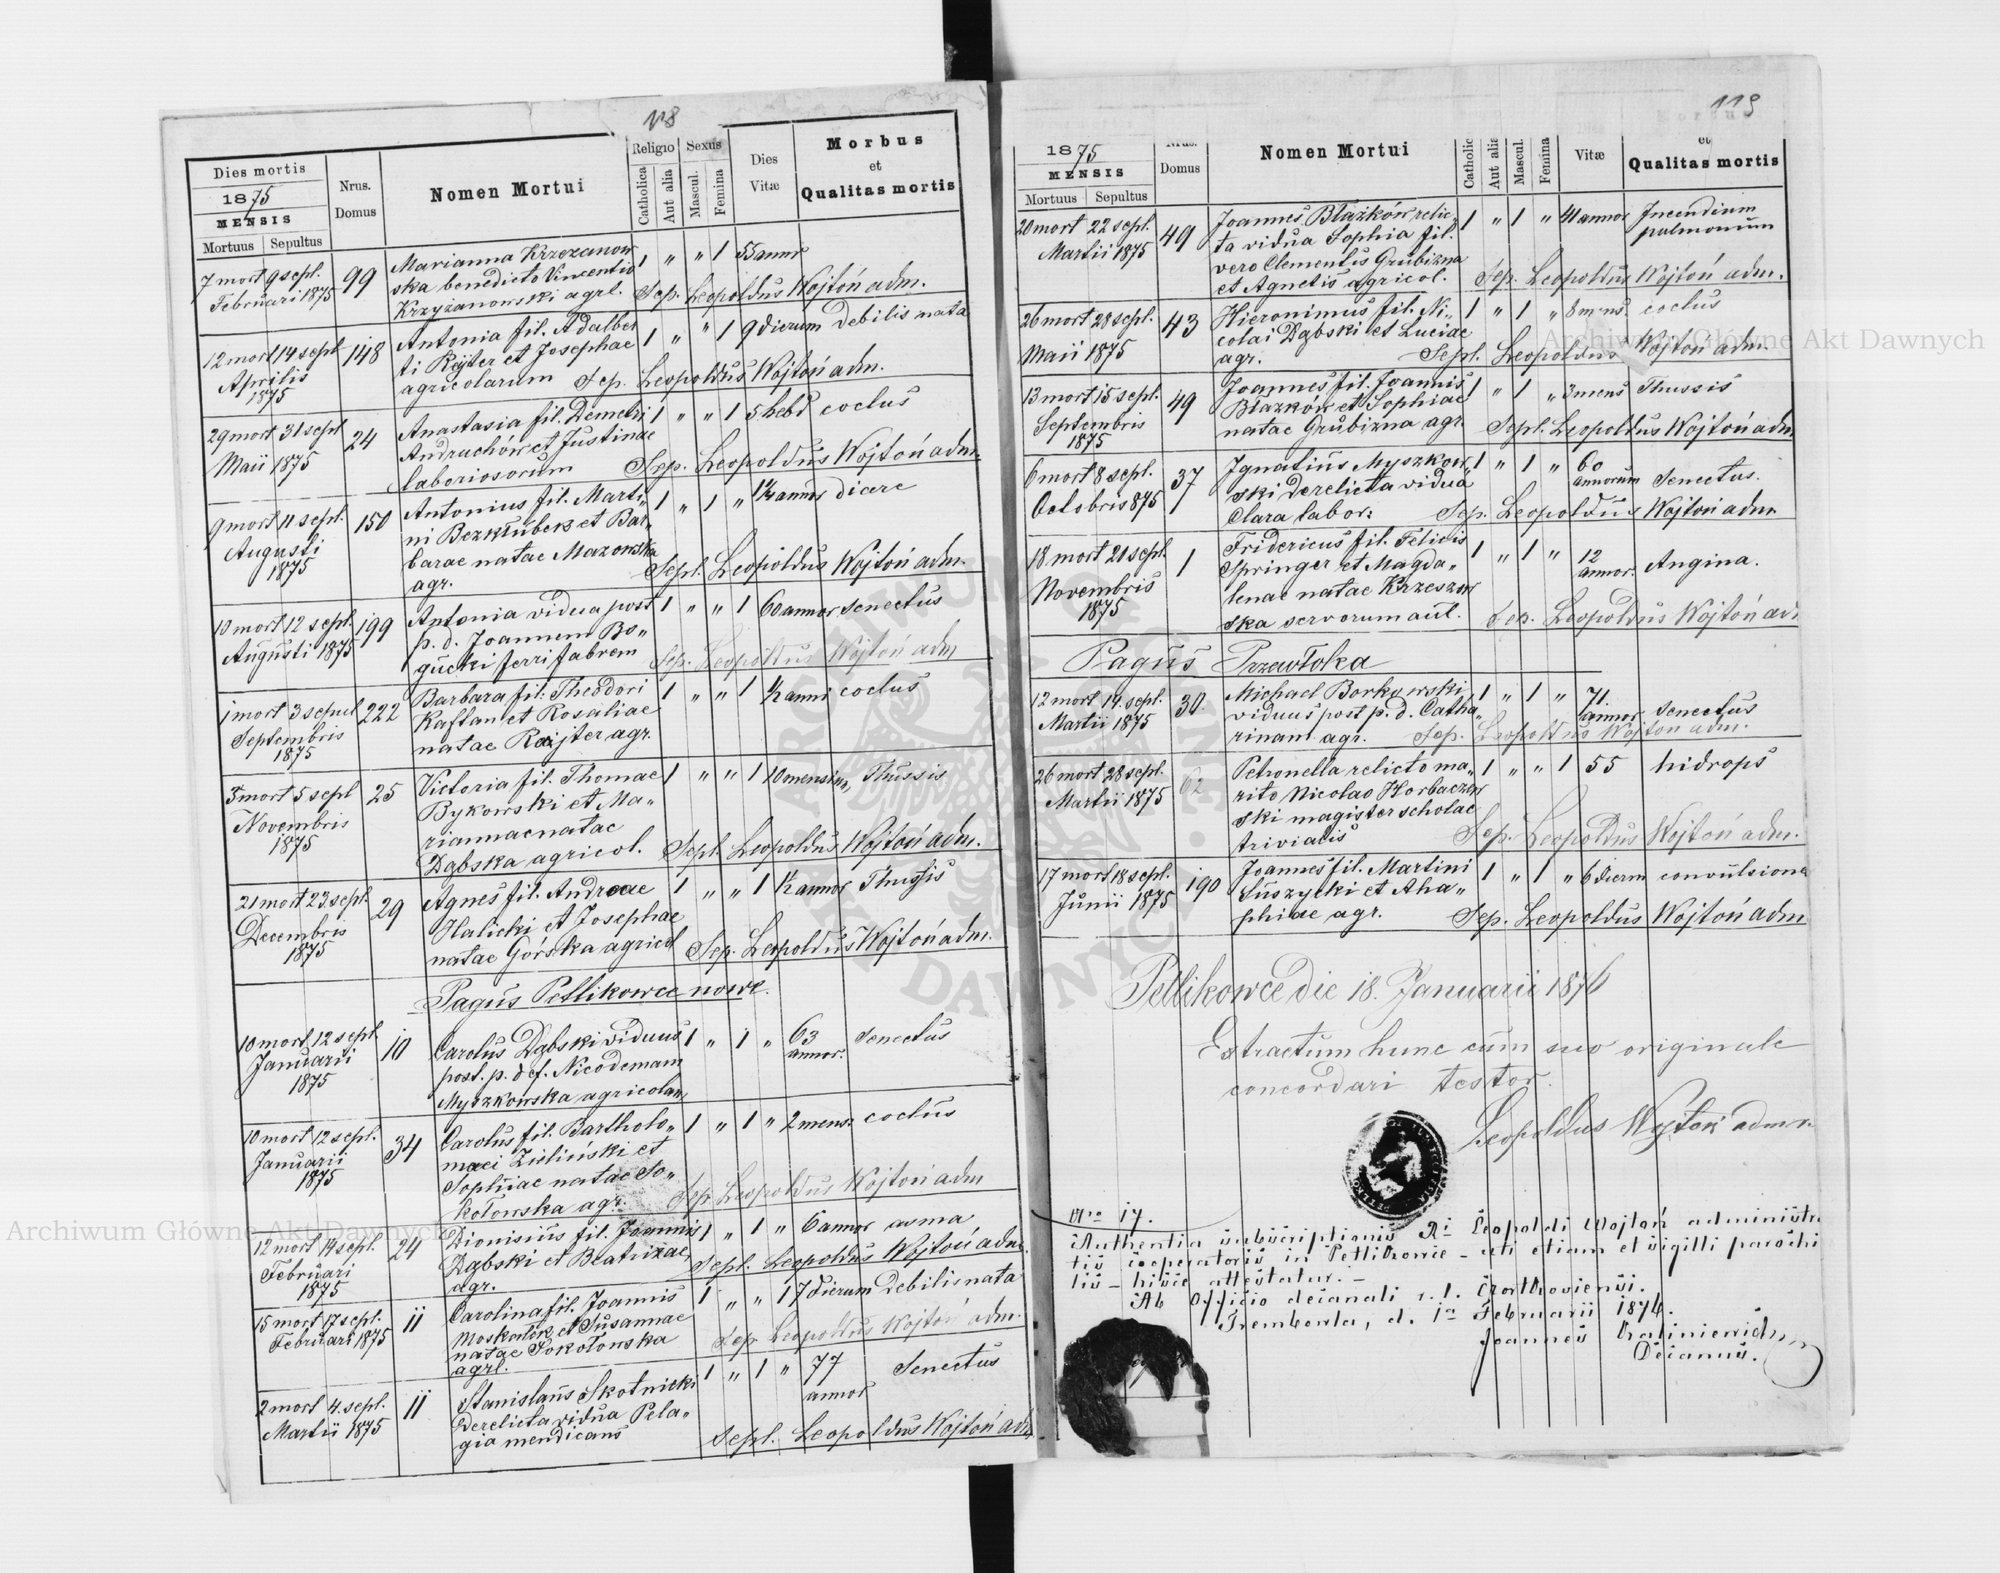 118
Dies mortis
1875
MENSIS
Mortuus Sepultus
Nrus. Domus
Nomen Mortui
Religio
Catholica
Aut alia
Sexus
Mascul.
Femina
Dies Vitæ
Morbus
et
Qualitas mortis
7 mort 9 sepl. 99 Marianna Krzezanow 1 " " 1 55 annor
Februari 1875 ska benedicto Vincentio
Krzyżanowski agrl. Sep. Leopoldus Wojtoń adm.
12 mort 14 sepl 148 Antonia fil. Adalber 1 " " 1 9 dierum debilis nata
Aprilis ti Rejter et Josephae
1875 agricolarum Sep. Leopoldus Wojtoń adm.
29 mort 31 sepl 24 Anastasia fil. Demetri 1 " " 1 5 hebd coclus
Maii 1875 Andruchów et Justinae
laboriosorum Sep. Leopoldus Wojtoń adm.
9 mort 11 sepl. 150 Antonius fil. Marti 1 " 1 " 1½ annor diare
Augusti ni Bezkłubek et Bar"
1875 barae natae Mazowska
agr. Sepl. Leopoldus Wojtoń adm.
10 mort 12 sepl. 199 Antonia vidua post 1 " " 1 60 annor senectus
Augusti 1875 p. d. Joannem Bo"
gucki ferri fabrem Sep. Leopoldus Wojtoń adm
1 mort 3 sepul 222 Barbara fil. Theodori 1 " " 1 ½ anni coclus
Septembris Kaftan et Rosaliae
1875 natae Rajter agr.
3 mort 5 sepl 25 Victoria fil. Thomae 1 " " 1 10 mensium, Thussis
Novembris Bykowski et Ma"
1875 riannae natae
Dąbska agricol. Sepl. Leopoldus Wojtoń adm.
21 mort 23 sepl. 29 Agnes fil. Andreae 1 " " 1 ½ annor Thussis
Decembris Halicki et Josephae
1875 natae Górska agricol Sep. Leopoldus Wojtoń adm.
Pagus Petlikowce nowe.
10 mort 12 sepl. 10 Carolus Dąbski viduus 1 " 1 " 63 annor. Senectus
Januarii post. p. def. Nicodemam
1875 Myszkowska agricolam
10 mort 12 sepl. 34 Carolus fil. Bartholo" 1 " 1 " 2 mens. coclus
Januarii maei Zieliński et
1875 Sophiae natae So"
kołowska agr. Sep Leopoldus Wojtoń adm
12 mort 14 sepl. 24 Dionisius fil. Joannis 1 " 1 " 6 annor asma
Februari Dąbski et Beatrizae,
1875 agr. Sepl. Leopoldus Wojtoń adm.
15 mort 17 sepl. 11 Carolina fil. Joannis 1 " " 1 7 dierum debilis nata
Februari 1875 Moskaluk et Susannae
natae Sokołowska
agrl. Sep Leopoldus Wojtoń adm.
2 mort 4. sepl. 11 Stanislaus Skotnicki 1 " 1 " 77 annor Senectus
Martii 1875 Derelicta vidua Pela"
gia mendicans Sepl. Leopoldus Wojtoń adm
119
1875
MENSIS
Mortuus Sepultus
Nrus. Domus
Nomen Mortui
Catholic
Aut alia
Mascul.
Femina
Vitæ
et
Qualitas mortis
20 mort 22 sepl. 49 Joannes Błażków relic" 1 " 1 " 41 annor Incendium
Martii 1875 ta vidua Sophia fil. pulmonium
vero Clementis Grubizna
et Agnetis agricol. Sep. Leopoldus Wojtoń adm.
26 mort 28 sepl. 43 Hieronimus fil. Ni" 1 " 1 " 8 mens. coclus
Maii 1875 colai Dąbski et Luciae
agr. Sepl. Leopoldus Wojtoń adm.
13 mort 15 sepl. 49 Joannes fil. Joannis 1 " 1 " 3 mens Thussis
Septembris Błażków et Sophiae
1875 natae Grubizna agr. Sepl. Leopoldus Wojtoń adm
6 mort 8 sepl. 37 Ignatius Myszkow" 1 " 1 " 60 annorum Senectus.
Octobris 875 ski derelicta vidua
Clara labor: Sep. Leopoldus Wojtoń adm
18 mort 21 sepl. 1 Fridericus fil. Felicis 1 " 1 " 12 annor. Angina.
Novembris Springer et Magda"
1875 lenae natae Krzeszow
ska servorum aul. Sep. Leopoldus Wojtoń adm
Pagus Przewłoka
12 mort 14. sepl. 30. Michael Borkowski 1 " 1 " 71. annor Senectus
Martii 1875 viduus post p. d. Catha"
rinam agr. Sep. Leopoldus Wojtoń adm.
26 mort 28 sepl. 62 Petronella relicto ma" 1 " " 1 55 hidrops
Martii 1875 rito Nicolao Horbaczew
ski magister scholae
trivialis Sep. Leopoldus Wojtoń adm.
17 mort 18 sepl. 190 Joannes fil. Martini 1 " 1 " 6 dierm convulsiones
Junii 1875 Suszycki et Aha"
phiae agr. Sep. Leopoldus Wojtoń adm
Petlikowce die 18. Januarii 1876
Extractum hunc cum suo originale
concordari testor.
Leopoldus Wojtoń adm.
Nro 17.
Authentia subscriptionis Ri Leopoldi Wojtoń administra
tis cooperatoris in Petlikowce - uti etiam et sigilli parochi
lis - hisce attestatur. -
Ab officio decanali r. l. Czortkoviensi.
Trembowla, d. 1a Februarii 1876.
Joannes Kaliniewicz
Decanus.
Archiwum Główne Akt Dawnych
Archiwum Główne Akt Dawnych